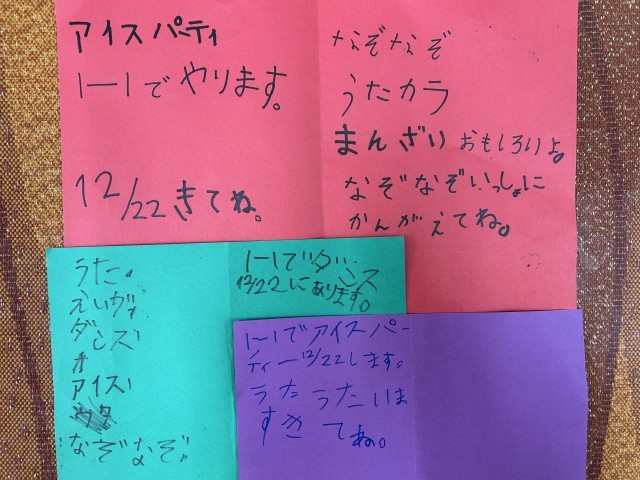 アイスパーティ
1-1でやります。
12/22きてね。
なぞなぞ
うたカラ
まんざいおもしろいよ。
なぞなぞいっしょに
かんがえてね。
うた。
えいが
ダンズ
アイス
なぞなぞ。
1-1でダンス
12/22にあります。
1-1でアイスパー
ティー12/22します。
うたうたいま
すきてね。